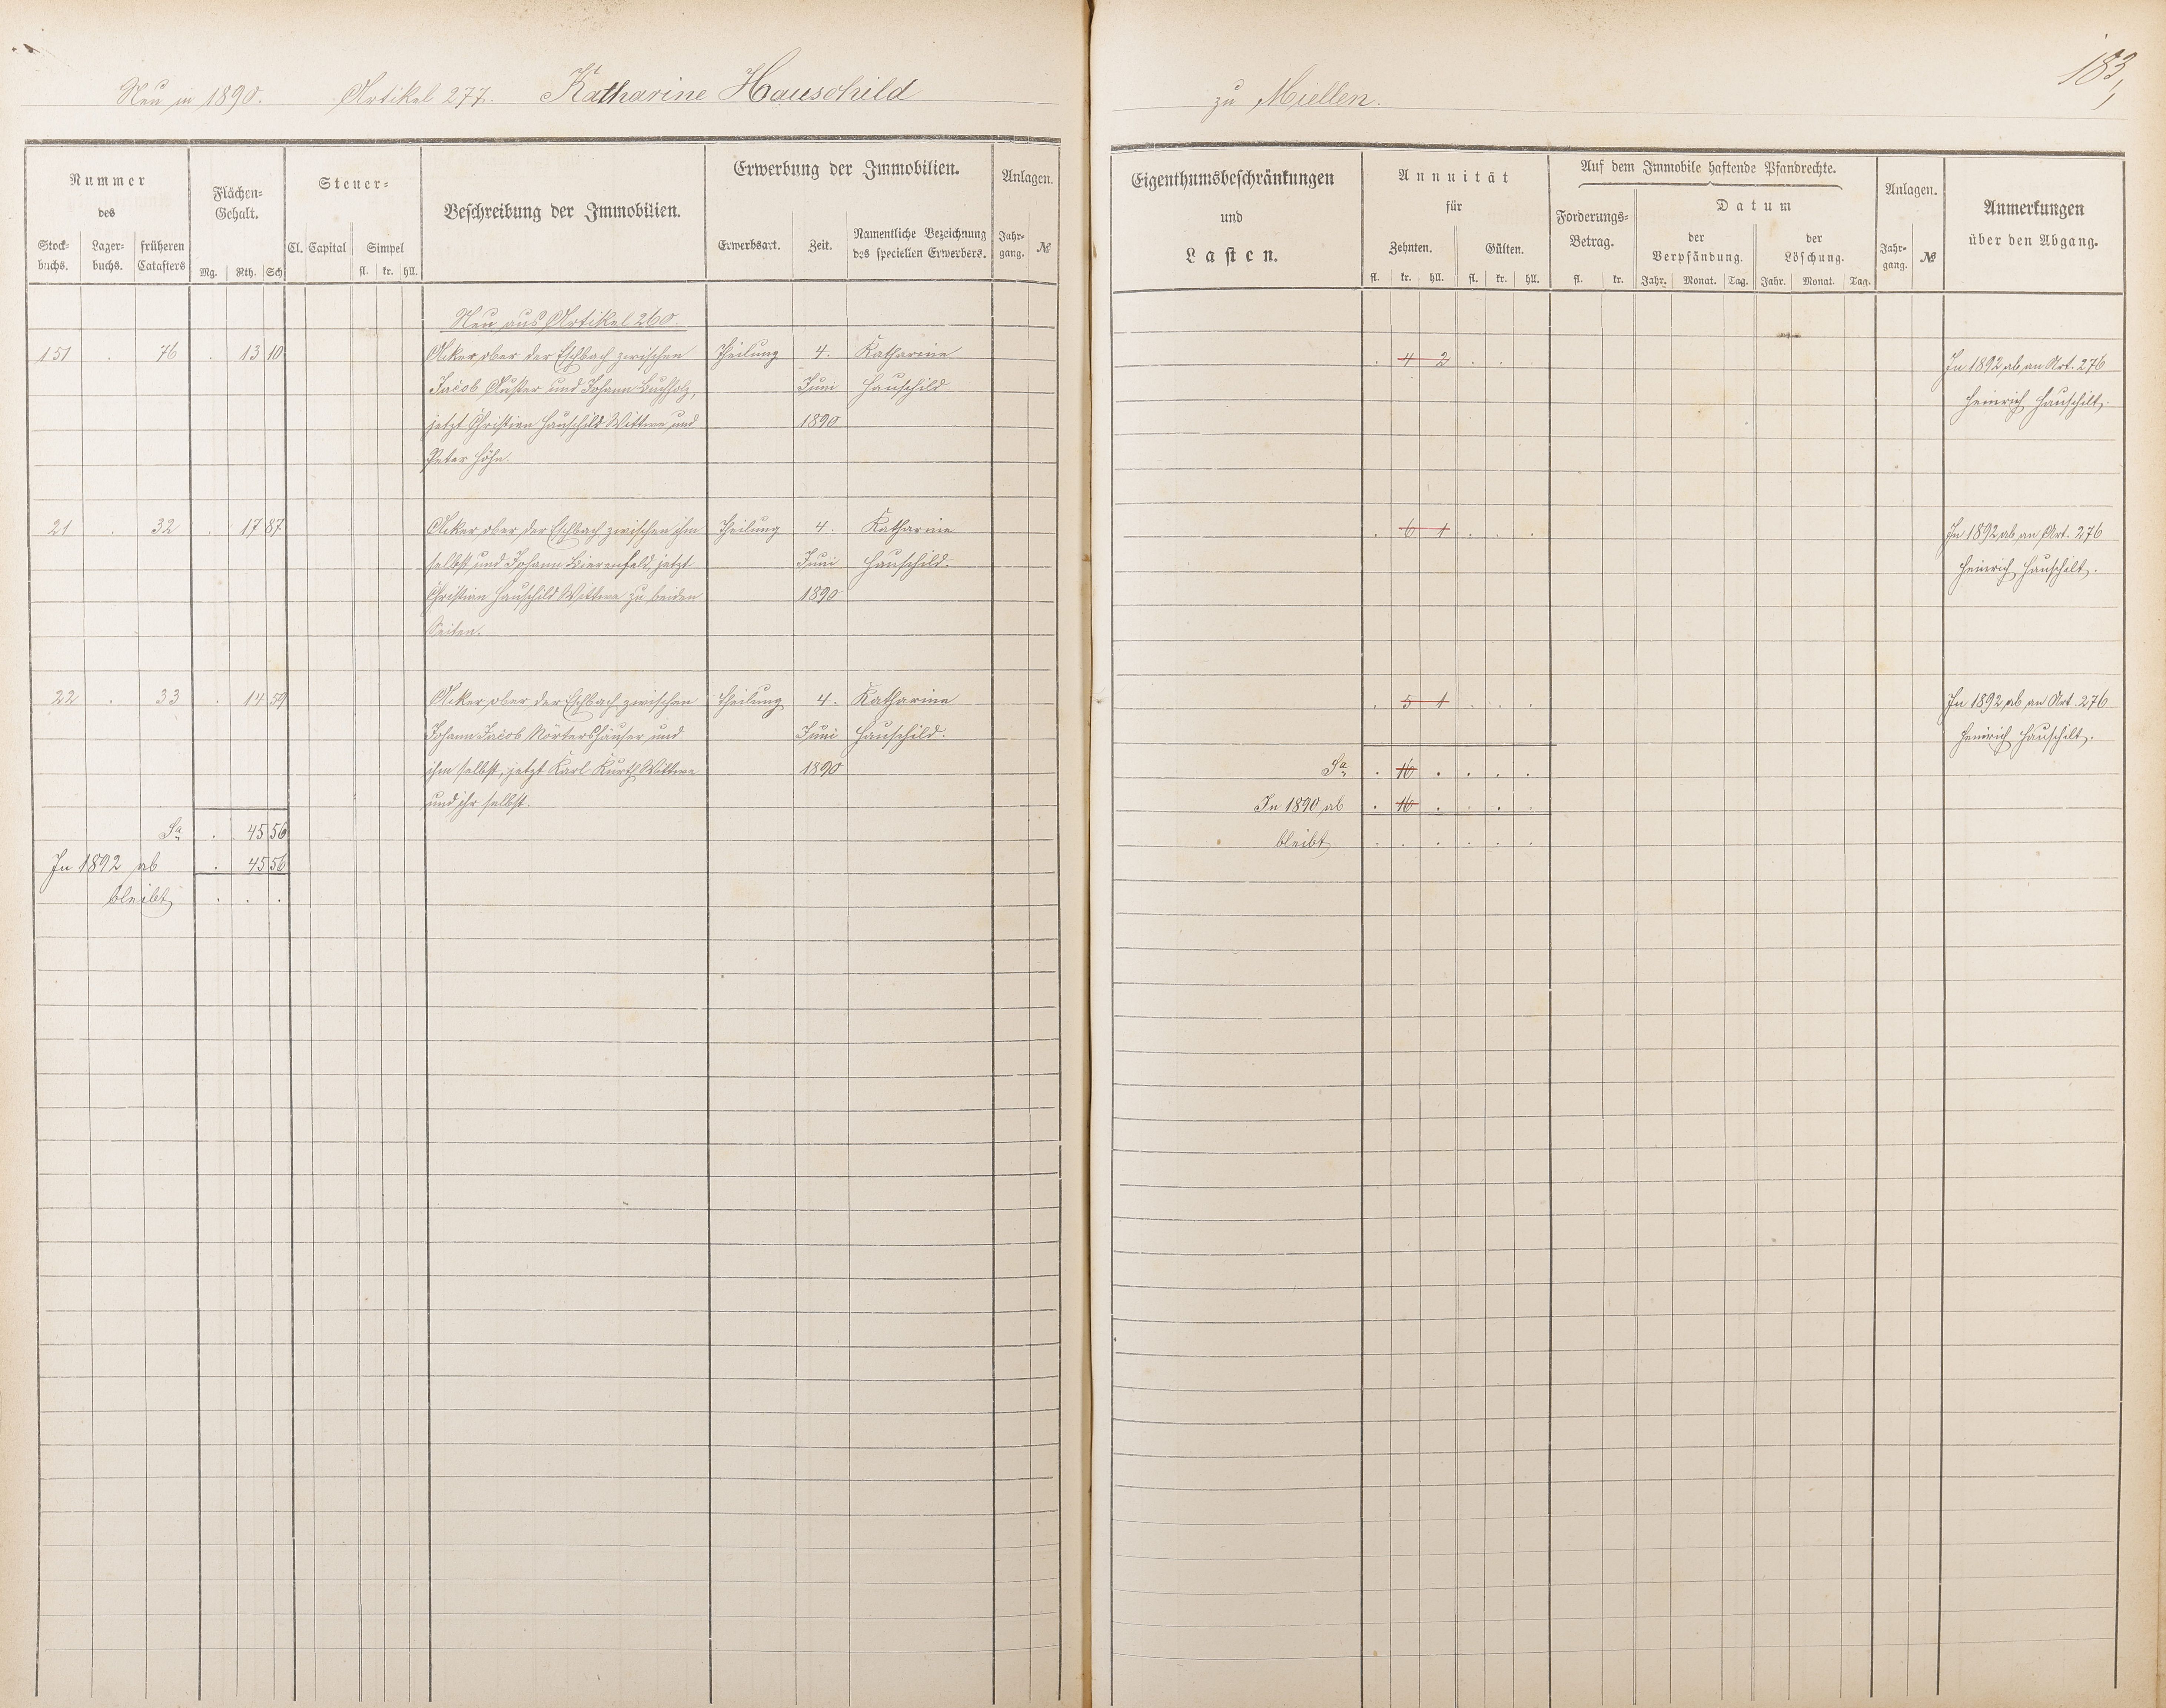 183,
Neu in 1890. Artikel 277. Katharine Hauschild zu Miellen.
Nummer
des
Stock-
buchs.
Lager-
buchs.
früheren
Catasters
Flächen-
Gehalt.
Mg. Rth. Sch
Steuer-
Cl. Capital Simpel
fl. kr. hll.
Beschreibung der Immobilien.
Erwerbung der Immobilien.
Erwerbsart. Zeit.
Namentliche Bezeichnung
des speciellen Erwerbers.
Anlagen.
Jahr-
gang.
№
Neu aus Artikel 260.
151 . 76 . 13 10 Acker ober der Eschbach zwischen Theilung 4. Katharine
Jacob und Johann Buchholz, Juni Hauschild
jetzt Christian Hauschild Wittwe und 1890
Peter Höhn.
21 . 32 . 17 87 Acker ober der Eschbach zwischen ihm Theilung 4. Katharine
selbst und Johann Bierenfeld, jetzt Juni Hauschild.
Christian Hauschild Wittwe zu beiden 1890
Seiten.
22 . 33 . 14 59 Acker ober der Eschbach zwischen Theilung 4. Katharine
Johann Jacob Nörtershäuser und Juni Hauschild.
ihm selbst, jetzt Karl Kurth Wittwe 1890
und ihr selbst.
Sa . 45 56
In 1892 ab . 45 56
bleibt . . .
Eigenthumsbeschränkungen
und
Lasten.
Annuität
für
Zehnten. Gülten.
fl. kr. hll. fl. kr. hll.
Auf dem Immobile haftende Pfandrechte.
Forderungs-
Betrag.
fl. kr.
Datum
der
Verpfändung.
Jahr. Monat. Tag.
der
Löschung.
Jahr. Monat. Tag.
Anlagen.
Jahr-
gang.
№
Anmerkungen
über den Abgang.
. 4 2 . . In 1892 ab an Art. 276
Heinrich Hauschilt.
. 6 1 . . . In 1892 ab an Art. 276
Heinrich Hauschilt.
. 5 1 . . . In 1892 ab an Art. 276
Heinrich Hauschilt.
Sa . 16 . . . .
In 1890 ab . 16 . . . .
bleibt . . . . . .